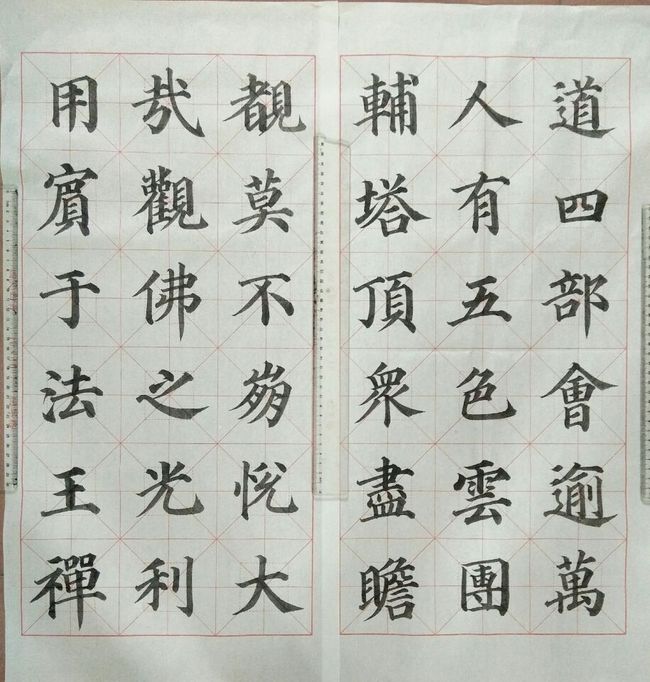 道四部會逾萬
人有五色雲團
輔塔頂衆盡瞻
覩莫不崩悅大
哉觀佛之光利
用賓于法王禪